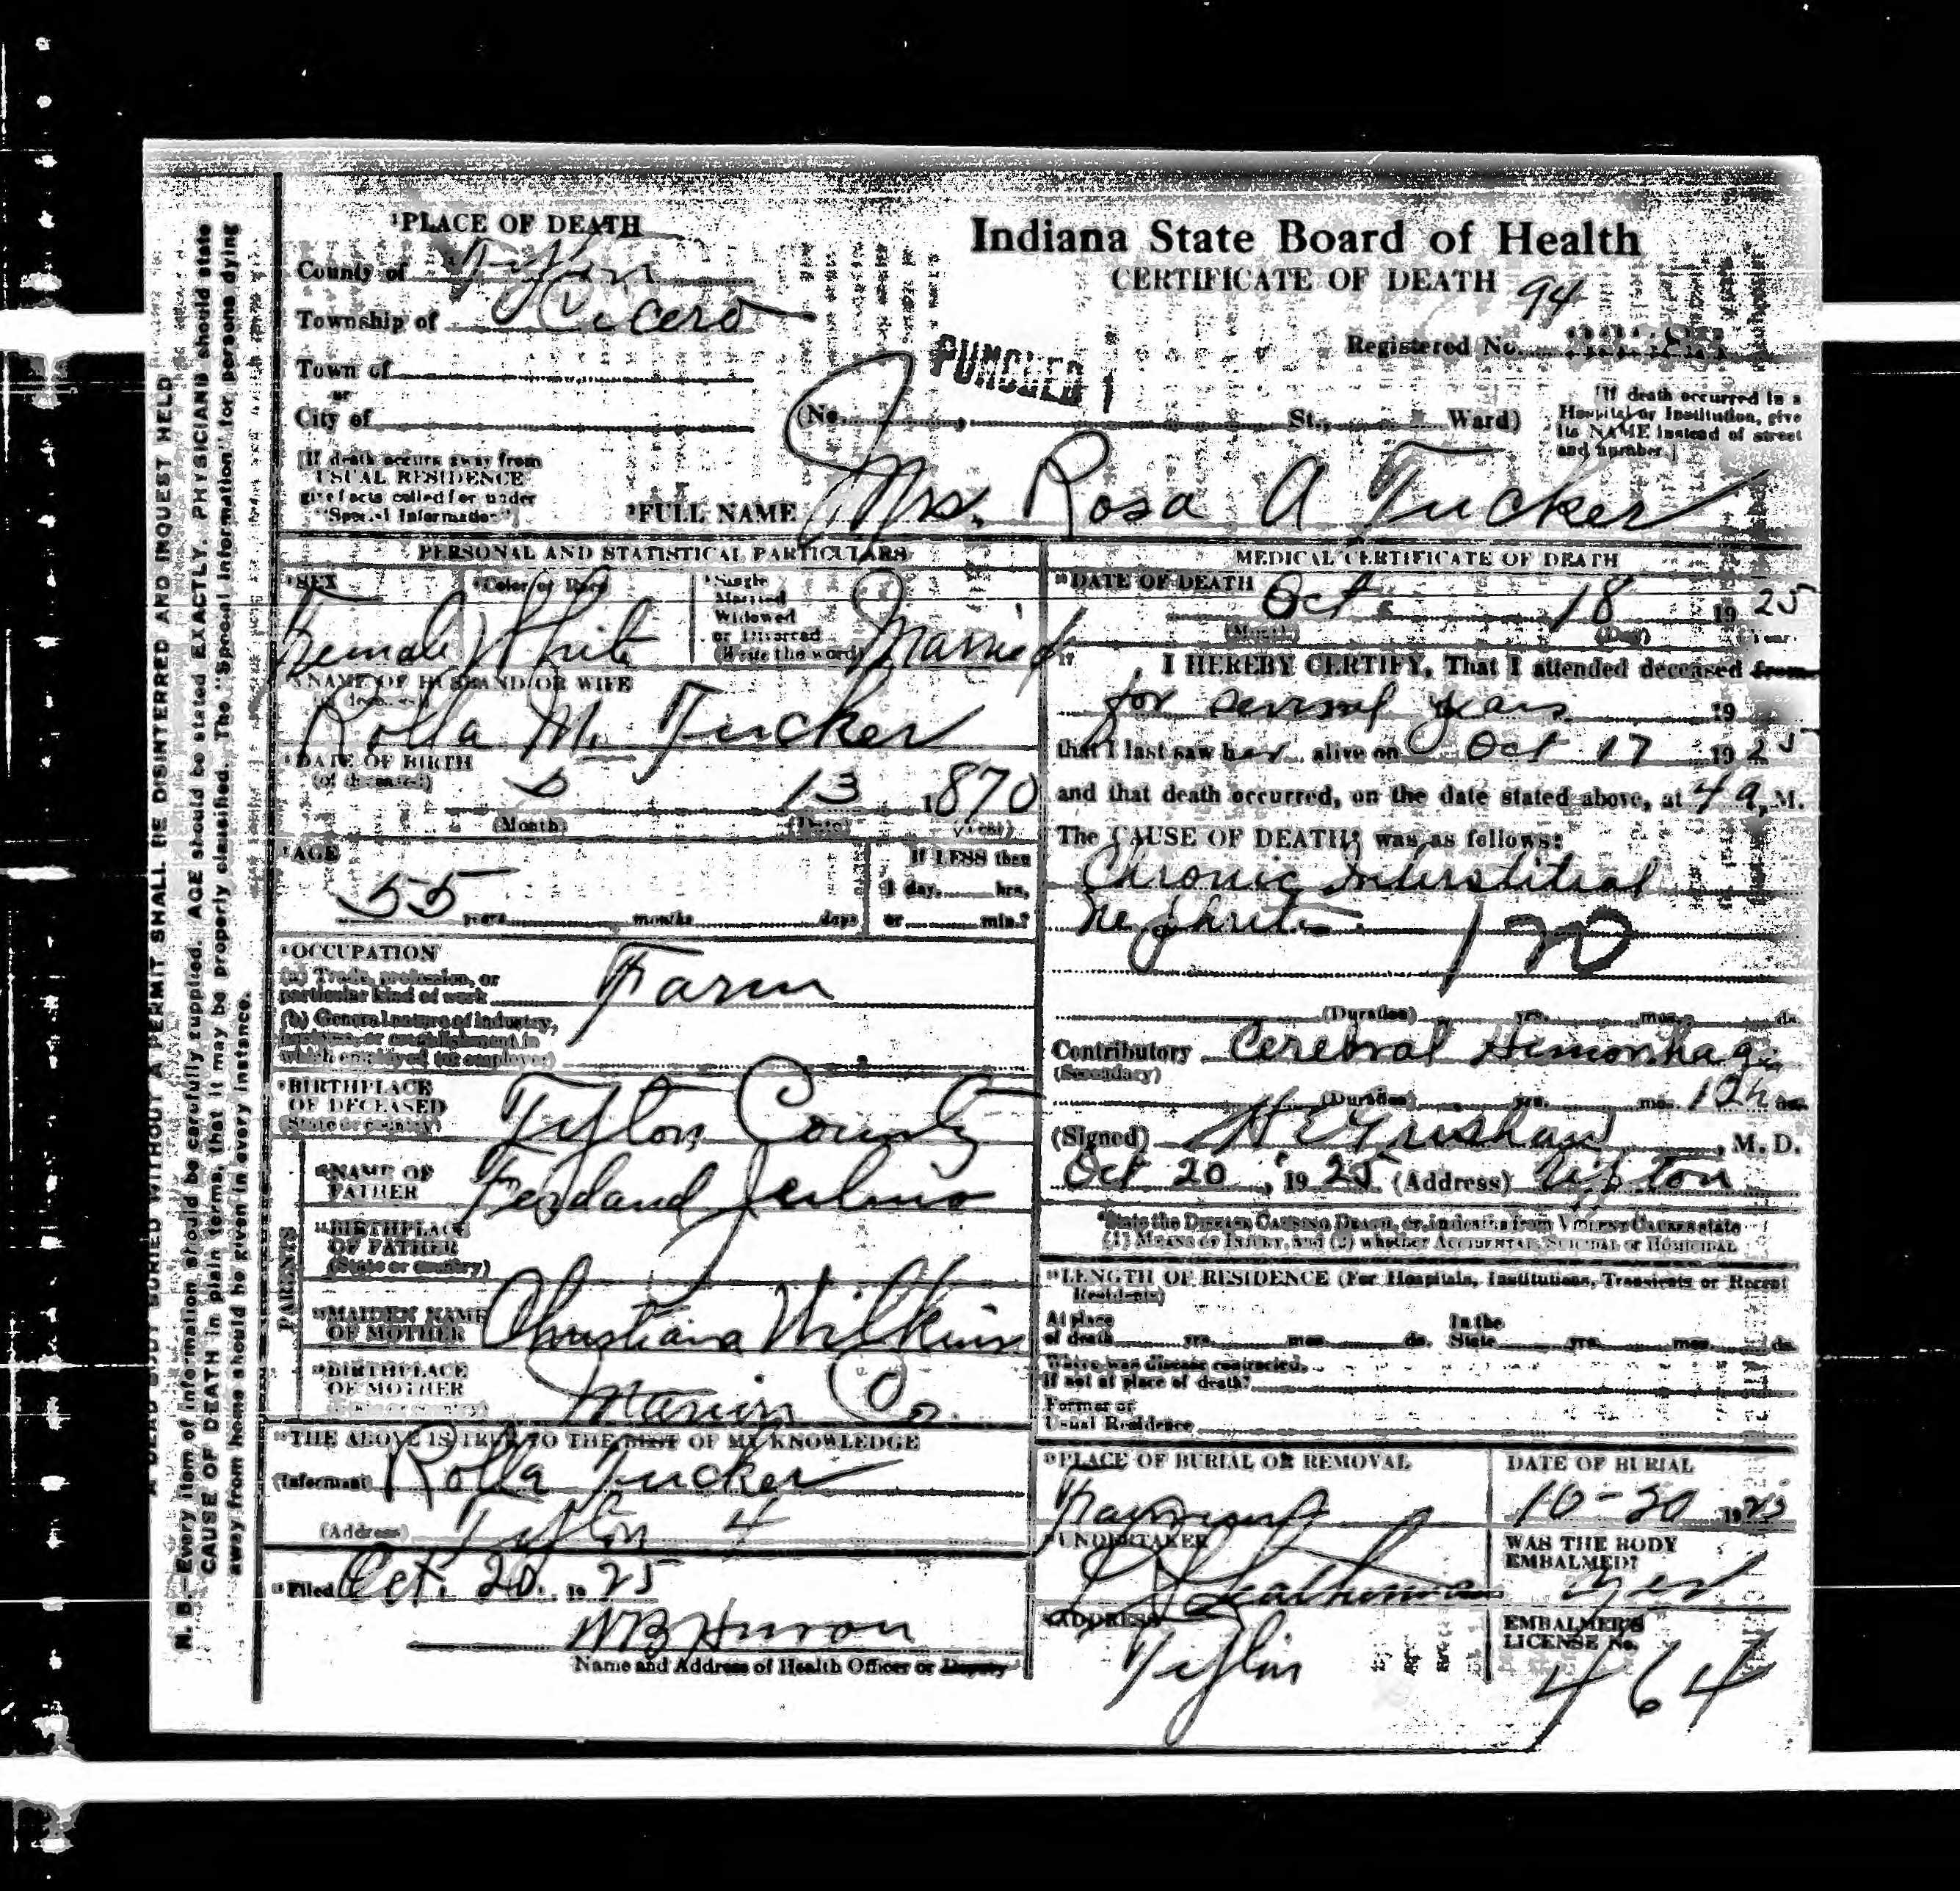 ¹PLACE OF DEATH
County of Tipton
Township of Cicero
Town of
or
City of
[If death occurs away from
USUAL RESIDENCE
give facts called for under
"Special Information"]
Indiana State Board of Health
CERTIFICATE OF DEATH
94
Registered No.
PUNCHED
(No. , St., Ward)
[If death occurred in a
Hospital or Institution, give
its NAME instead of street
and number.]
²FULL NAME Mrs. Rosa A Tucker
PERSONAL AND STATISTICAL PARTICULARS
SEX
Female
Color or Race
White
Single
Married
Widowed
or Divorced
(Write the word)
Married
NAME OF HUSBAND OR WIFE
Rolla M. Tucker
DATE OF BIRTH
(of deceased)
5 13 1870
(Month) (Date) (Year)
AGE
55 years months days
If LESS then
1 day, hrs,
or min.?
OCCUPATION
(a) Trade, profession, or
particular kind of work
Farm
(b) General nature of industry,
business, or establishment in
which employed (or employer)
BIRTHPLACE
OF DECEASED
(State or country)
Tipton County
PARENTS
NAME OF
FATHER
Ferdand
BIRTHPLACE
OF FATHER
(State or country)
MAIDEN NAME
OF MOTHER
Christiana Wilkins
BIRTHPLACE
OF MOTHER
Marion Co.
THE ABOVE IS TRUE TO THE BEST OF MY KNOWLEDGE
(Informant) Rolla Tucker
(Address) Tipton 4
Filed Oct. 20, 1925
W B Huron
Name and Address of Health Officer or Deputy
MEDICAL CERTIFICATE OF DEATH
DATE OF DEATH
Oct 18 1925
(Month) (Day) Year
17 I HEREBY CERTIFY, That I attended deceased from
for several years 19
that I last saw her alive on Oct 17 1925
and that death occurred, on the date stated above, at 4 a, M.
The CAUSE OF DEATH* was as follows:
Chronic Interstitial
Nephritis.
120
(Duration) yrs. mos. ds.
Contributory Cerebral Hemorrhage
(Secondary)
(Duration) yrs. mos. 12h ds.
(Signed) H E Grishaw, M. D.
Oct 20, 1925 (Address) Tipton
*State the DISEASE CAUSING DEATH, or, in deaths from VIOLENT CAUSES state
(1) MEANS OF INJURY, and (2) whether ACCIDENTAL, SUICIDAL or HOMICIDAL
LENGTH OF RESIDENCE (For Hospitals, Institutions, Transients or Recent
Residents)
At place
of death yrs. mos. ds.
In the
State yrs. mos. ds.
Where was disease contracted,
If not at place of death?
Former or
Usual Residence
PLACE OF BURIAL OR REMOVAL
DATE OF BURIAL
10-20 1925
UNDERTAKER
WAS THE BODY
EMBALMED?
yes
ADDRESS
Tipton
EMBALMER'S
LICENSE No.
464
A DEAD BODY BURIED WITHOUT A PERMIT SHALL BE DISINTERRED AND INQUEST HELD
N. B.—Every item of information should be carefully supplied. AGE should be stated EXACTLY. PHYSICIANS should state
CAUSE OF DEATH in plain terms, that it may be properly classified. The "Special Information" for persons dying
away from home should be given in every instance.